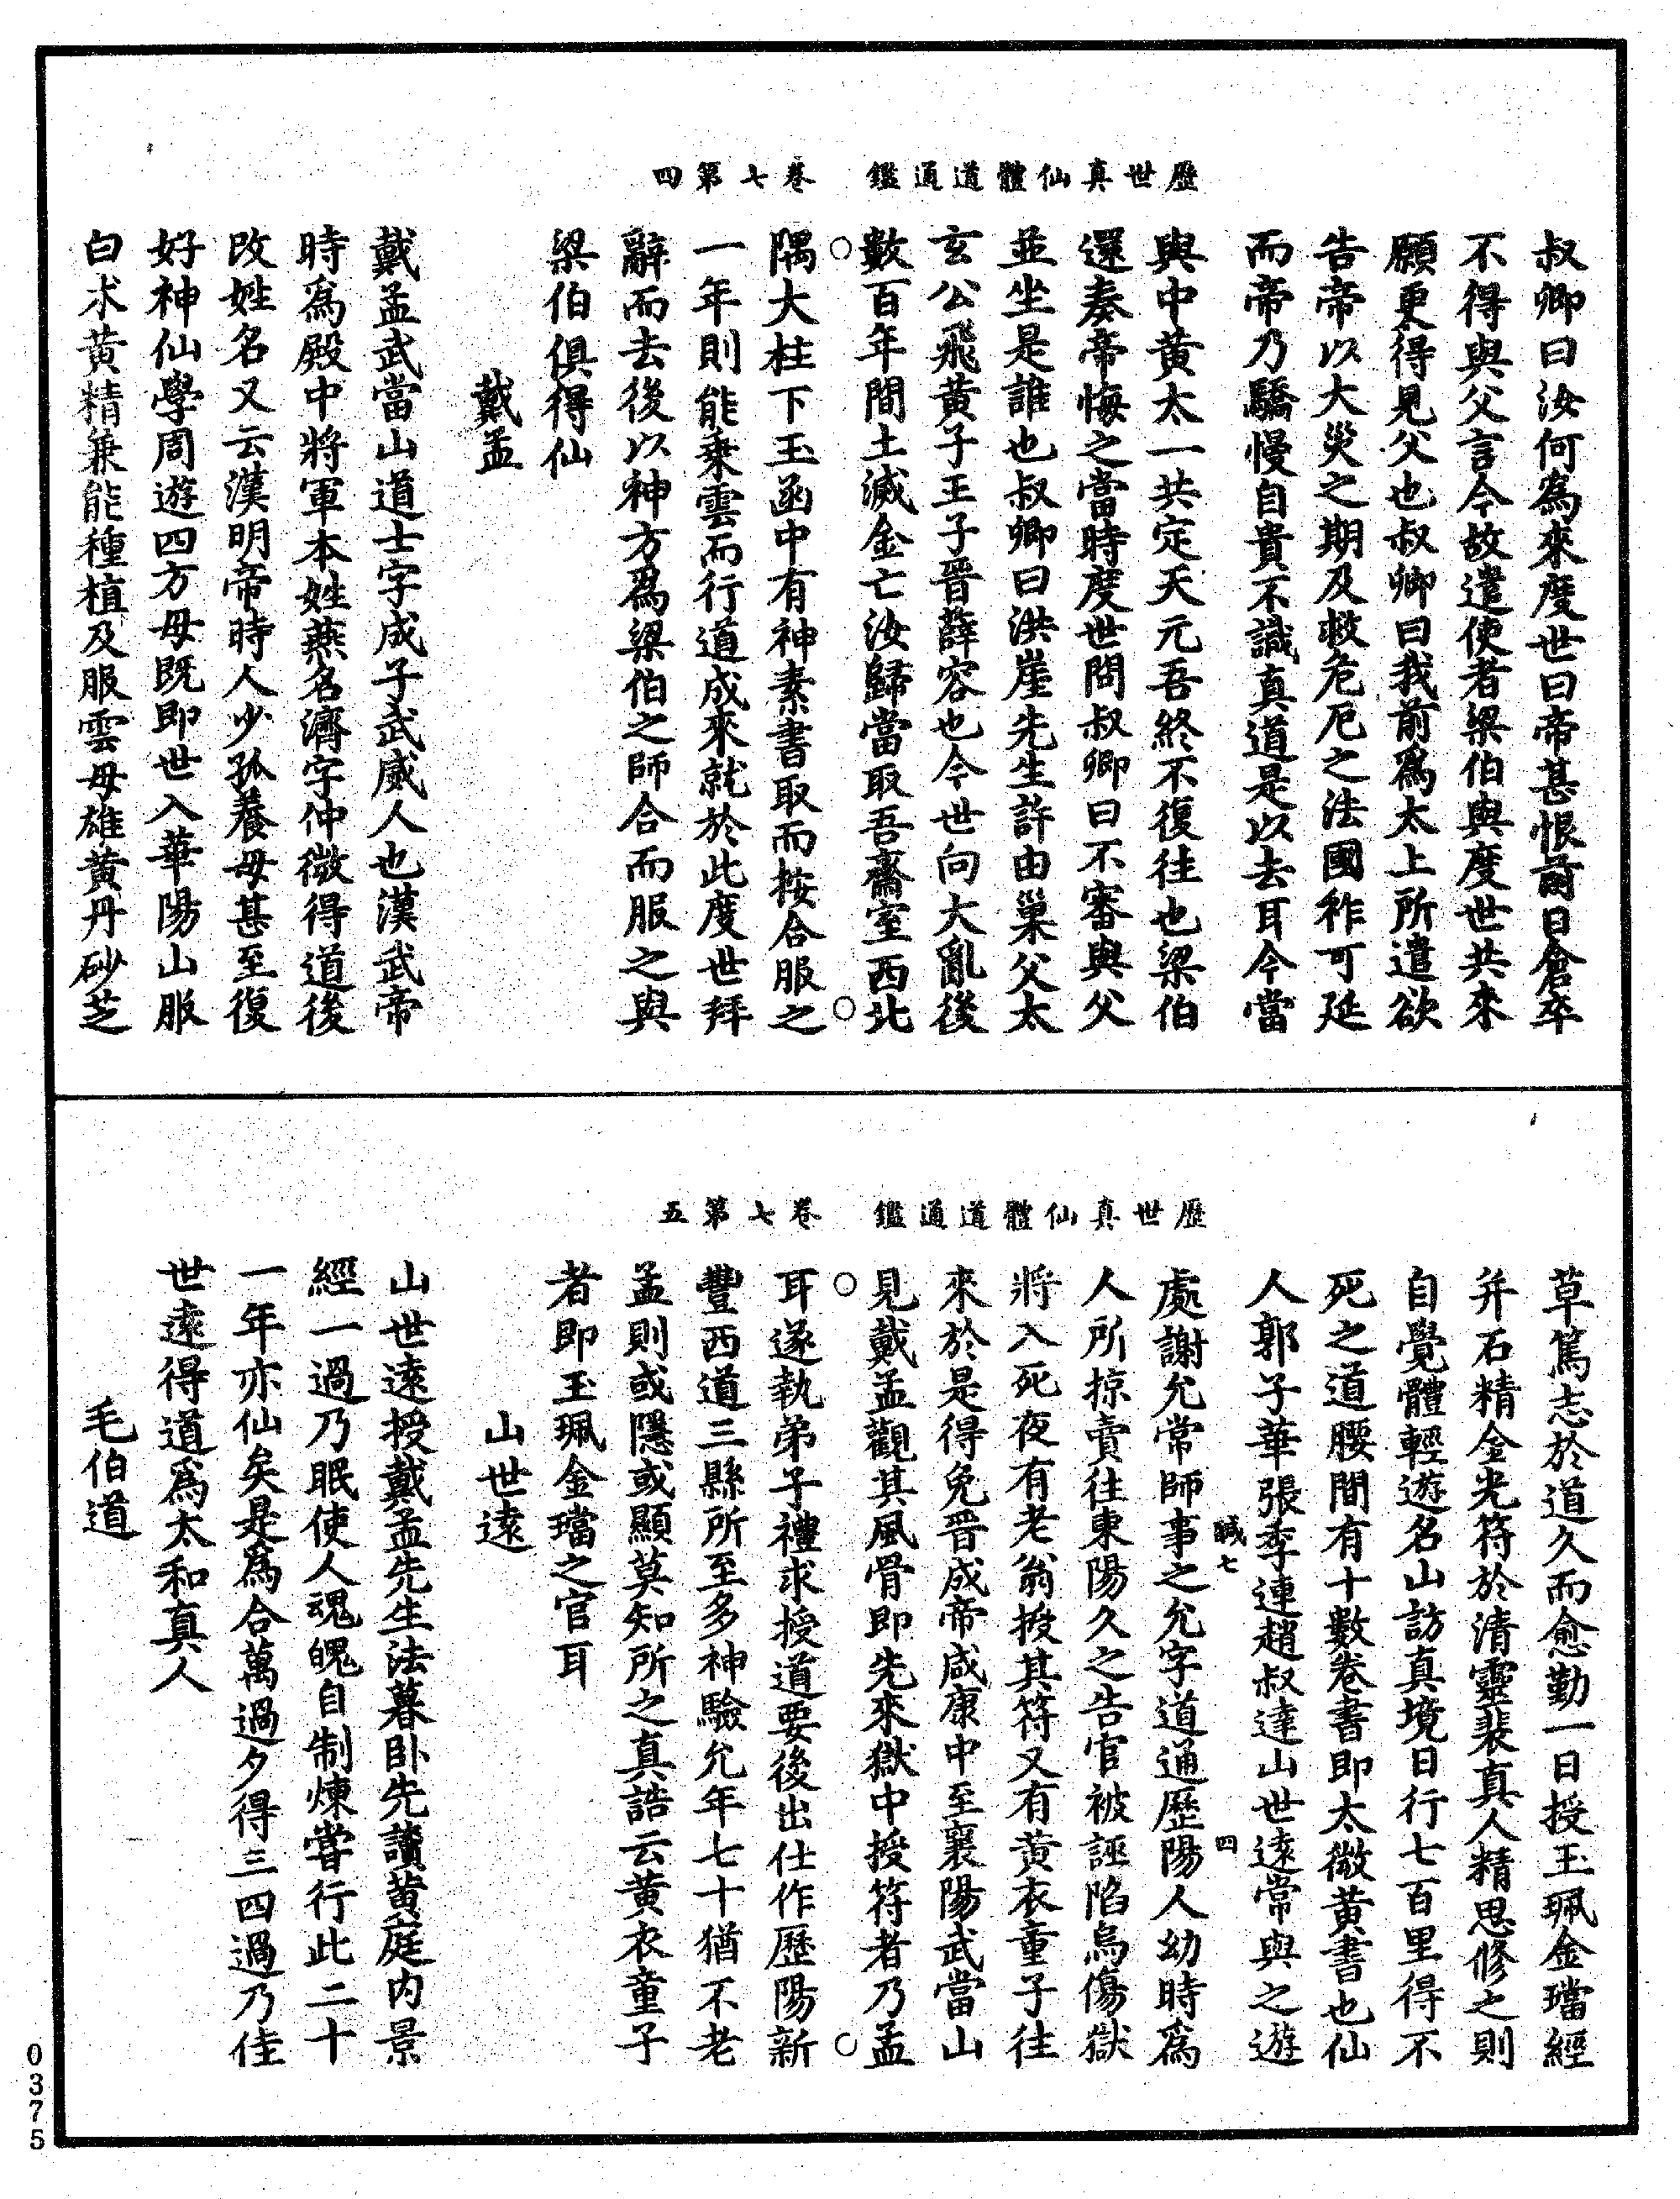 歷世真仙體道通鑑　卷七第四
叔卿曰汝何爲來度世曰帝甚恨前日倉卒
不得與父言今故遣使者梁伯與度世共來
願更得見父也叔卿曰我前爲太上所遣欲
告帝以大災之期及救危厄之法國祚可延
而帝乃驕慢自貴不識真道是以去耳今當
與中黃太一共定天元吾終不復往也梁伯
還奏帝悔之當時度世問叔卿曰不審與父
並坐是誰也叔卿曰洪崖先生許由巢父太
玄公飛黃子王子晉薛容也今世向大亂後
數百年間土滅金亡汝歸當取吾齋室西北
隅大柱下玉函中有神素書取而按合服之
一年則能乗雲而行道成來就於此度世拜
辭而去後以神方爲梁伯之師合而服之與
梁伯俱得仙
戴孟
戴孟武當山道士字成子武威人也漢武帝
時爲殿中將軍本姓燕名濟字仲微得道後
改姓名又云漢明帝時人少孤養母甚至復
好神仙學周遊四方母既即世入華陽山服
白朮黃精兼能種植及服雲母雄黃丹砂芝
歷世真仙體道通鑑　卷七第五
草篤志於道久而愈勤一日授玉珮金璫經
并石精金光符於清靈裴真人精思修之則
自覺體輕遊名山訪真境日行七百里得不
死之道腰間有十數卷書即太微黃書也仙
人郭子華張季連趙叔達山世遠常與之遊
鹹七　四
處謝允常師事之允字道通歷陽人幼時爲
人所掠賣往東陽久之告官被誣陷烏傷獄
將入死夜有老翁授其符又有黃衣童子往
來於是得免晉成帝咸康中至襄陽武當山
見戴孟觀其風骨即先來獄中授符者乃孟
耳遂執弟子禮求授道要後出仕作歷陽新
豐西道三縣所至多神驗允年七十猶不老
孟則或隱或顯莫知所之真誥云黃衣童子
者即玉珮金璫之官耳
山世遠
山世遠授戴孟先生法暮卧先讀黃庭内景
經一過乃眠使人魂魄自制煉嘗行此二十
一年亦仙矣是爲合萬過夕得三四過乃佳
世遠得道爲太和真人
毛伯道
0375